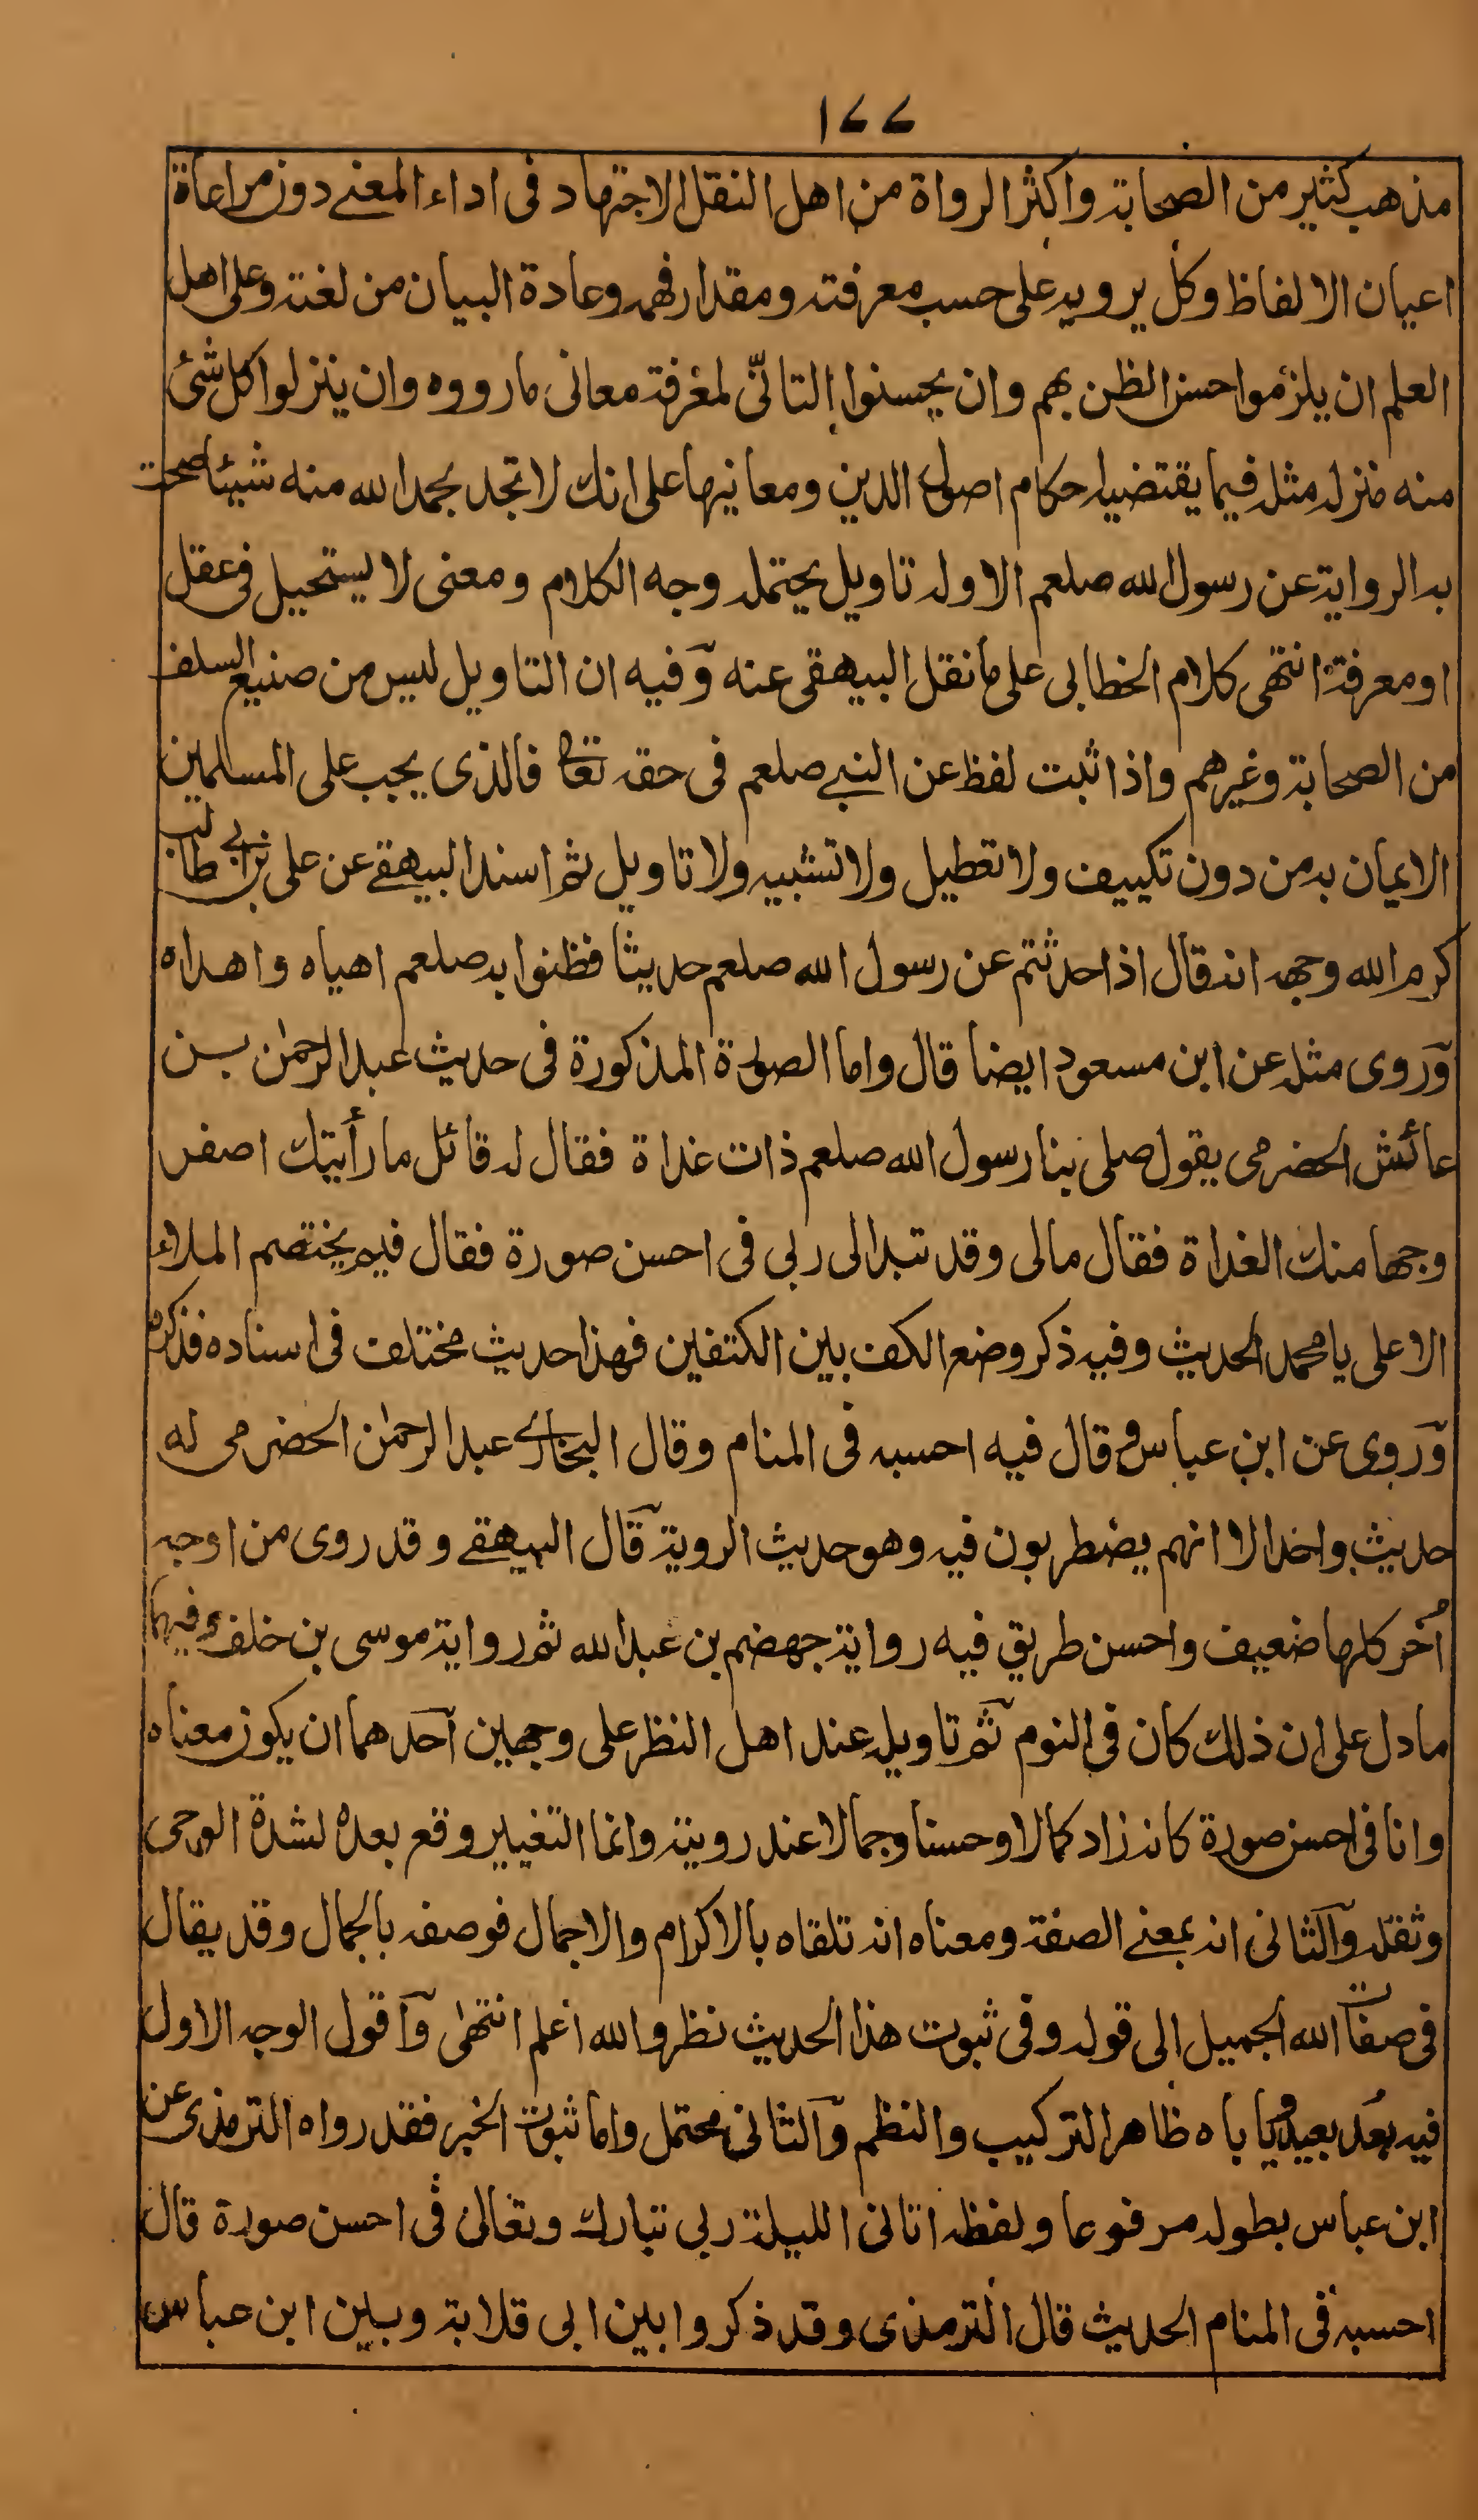 ١٧٧
مذهب كثير من الصحابة واكثر الرواة من اهل النقل الاجتهاد فى اداء المعنے دون مراعاة
اعيان الالفاظ وكل يرويه على حسب معرفته ومقدار فهمه وعادة البيان من لغته وعلى اهل
العلم ان يلزموا حسن الظن بهم وان يحسنوا التاتّى لمعرفة معانى ما رووه وان ينزلوا كل شئ
منه منزلة مثله فيما يقتضيه احكام اصول الدين ومعانيها على انك لا تجد بحمد الله منه شيئا صحت
به الرواية عن رسول الله صلعم الا وله تاويل يحتمله وجه الكلام ومعنى لا يستحيل فى عقل
او معرفة انتهى كلام الخطابى على ما نقل البيهقى عنه وفيه ان التاويل ليس من صنيع السلف
من الصحابة وغيرهم واذا ثبت لفظ عن النبے صلعم فى حقه تعا فالذى يجب على المسلمين
الايمان به من دون تكييف ولا تعطيل ولا تشبيه ولا تاويل ثم اسند البيهقے عن على بن ابے طالب
كرم الله وجهه انه قال اذا حدثتم عن رسول الله صلعم حديثا فظنوا به صلعم اهياه واهداه
وروى مثله عن ابن مسعود ايضا قال واما الصورة المذكورة فى حديث عبد الرحمٰن بن
عائش الحضرمى يقول صلى بنا رسول الله صلعم ذات غداة فقال له قائل ما رأيتك اصفر
وجها منك الغداة فقال مالى وقد تبدا لى ربى فى احسن صورة فقال فيم يختصم الملاء
الاعلى يا محمد الحديث وفيه ذكر وضع الكف بين الكتفين فهذا حديث مختلف فى اسناده فذكره
وروى عن ابن عباس وقال فيه احسبه فى المنام وقال البخارى عبد الرحمٰن الحضرمى له
حديث واحد الا انهم يضطربون فيه وهو حديث الروية قال البيهقے وقد روى من اوجه
أُخر كلها ضعيف واحسن طريق فيه رواية جهضم بن عبد الله ثم رواية موسى بن خلف وفيهما
ما دل على ان ذلك كان فى النوم ثم تاويله عند اهل النظر على وجهين احدهما ان يكون معناه
وانا فى احسن صورة كانه زاد كمالا وحسنا وجمالا عند رويته وانما التغيير وقع بعده لشدة الوحى
وثقله والثانى انه بمعنے الصفة ومعناه انه تلقاه بالاكرام والاجمال فوصفه بالجمال وقد يقال
فى صفات الله الجميل الى قوله وفى ثبوت هذا الحديث نظر والله اعلم انتهٰى واقول الوجه الاول
فيه بُعد بعيد وياباه ظاهر التركيب والنظم والثانى محتمل واما ثبوت الخبر فقد رواه الترمذى عن
ابن عباس بطوله مرفوعا ولفظه اتانى الليلة ربى تبارك وتعالىٰ فى احسن صورة قال
احسبه فى المنام الحديث قال الترمذى وقد ذكروا بين ابى قلابة وبين ابن عباس